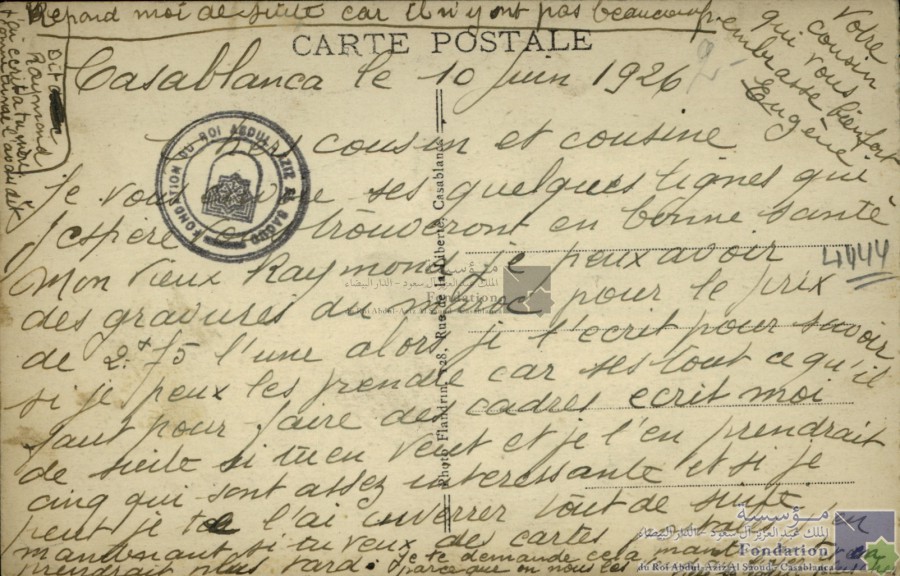 Repond moi de suite car il n'y ont pas beaucoup
CARTE POSTALE
Casablanca le 10 Juin 1926
cousin et cousine
Je vous ses quelques lignes qui
J'espère trouveront en bonne santé
Mon vieux Raymond je peux avoir
des gravures du maroc pour le prix
de 2.75 l'une alors je t'ecrit pour savoir
si je peux les prendre car ses tout ce qu'il
faut pour faire des cadres ecrit moi
de suite si tu en veut et je t'en prendrait
cinq qui sont assez interessante et si je
peut je te l'ai enverrer tout de suite
maintenant si tu veux des cartes
prendrait plus tard. Je te demande cela
parce que nous les
Votre
cousin
qui vous
embrasse bien fort
Eugène
Dit
Raymond
4444
2-
Photo Flandrin, 128, Rue de la Liberté, Casablanca
FONDATION DU ROI ABDUL AZIZ AL SAOUD
مؤسسة
الملك عبد العزيز آل سعود - الدار البيضاء
Fondation
du Roi Abdul-Aziz Al Saoud - Casablanca
مؤسسة
الملك عبد العزيز آل سعود - الدار البيضاء
Fondation
du Roi Abdul-Aziz Al Saoud - Casablanca